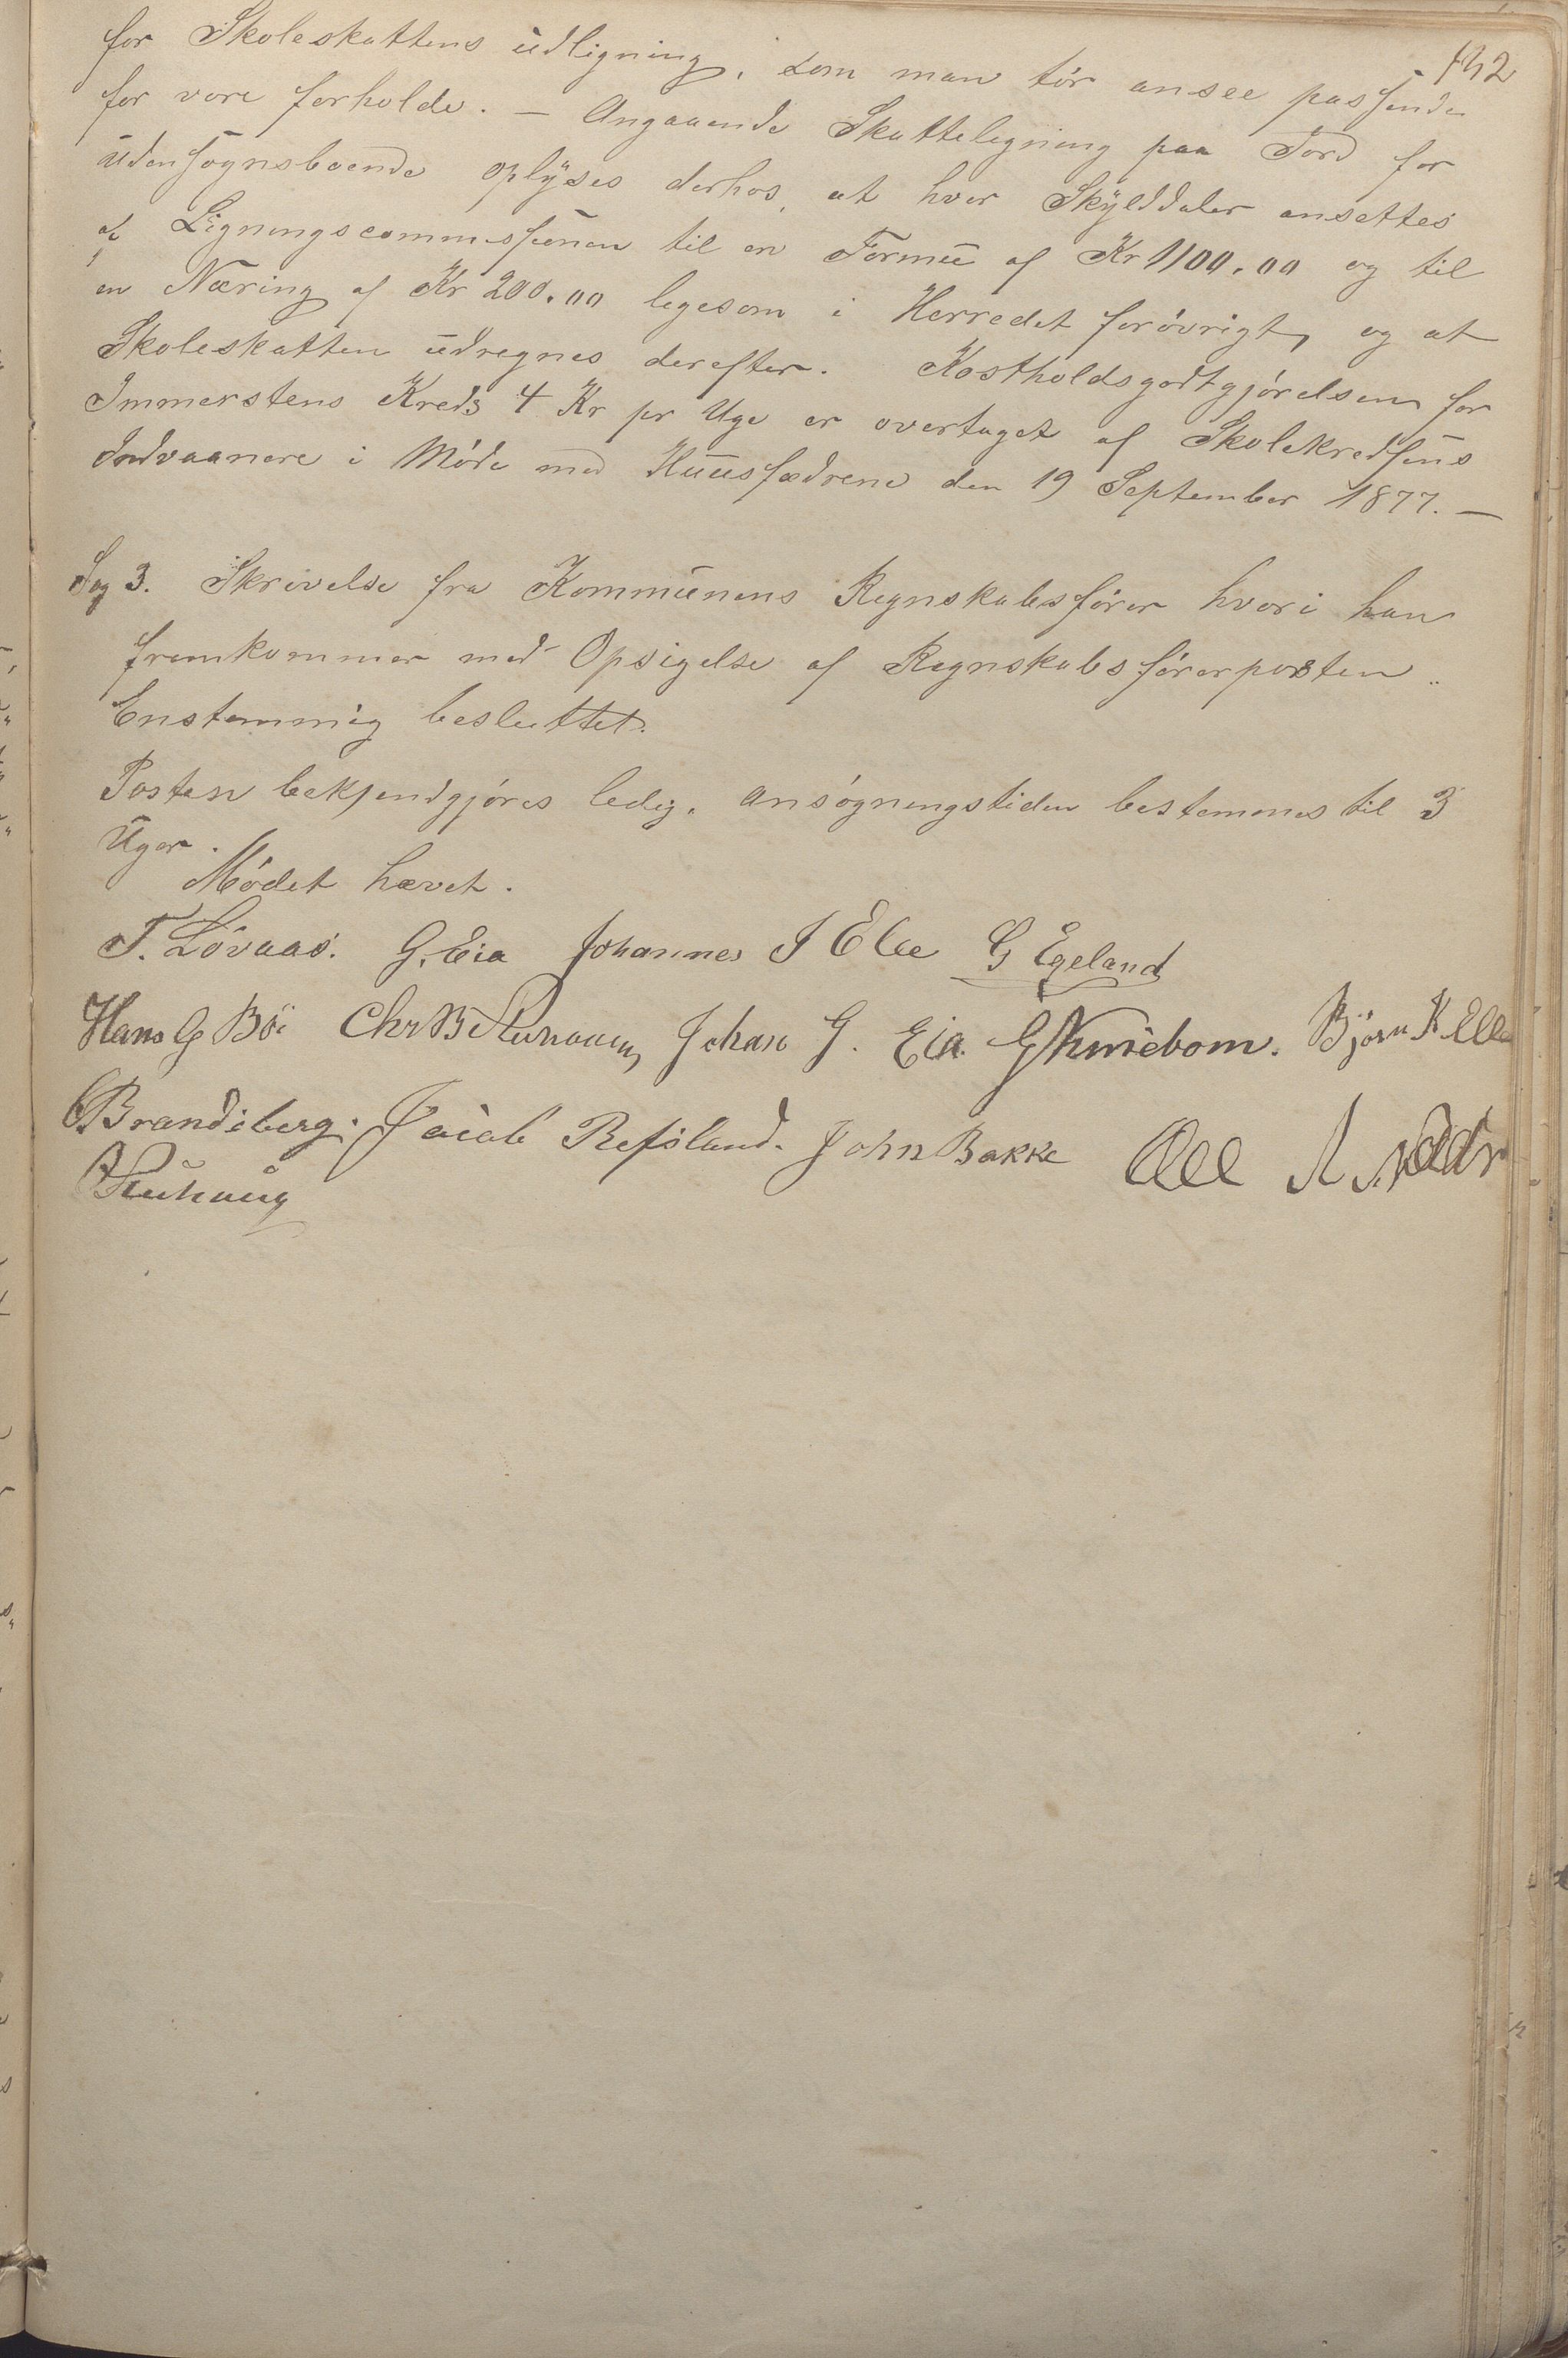 132
for Skoleskattens udligning, som man tör ansee passende
for vore forholde. — Angaaende Skattelegning paa Jord for
udensognsboende oplyses derhos, at hver Skylddaler ansettes
af Ligningscommissionen til en Formue af Kr 1100.00 og til
en Næring af Kr 200.00 legesom i Herredet forövrigt, og at
Skoleskatten udregnes derefter. Kostholdsgodtgjörelsen for
Immerstens Kreds 4 Kr pr Uge er overtaget af Skolekredsens
Indvaanere i Möde med Huusfædrene den 19 September 1877. —
Sag 3. Skrivelse fra Kommunens Regnskabsförer hvori han
fremkommer med Opsigelse af Regnskabsförerposten
Enstemmig besluttet.
Posten bekjendgjöres ledig. Ansögningstiden bestemmes til 3
Uger.
Mödet hævet.
T. Lövaas. G. Eia Johannes J Elle G Egeland
Hans G Böe Chr B Johan G. Eia. G Kvuiebom. Björn K Elle
Brandsberg. Jacob Refsland. John Bakke